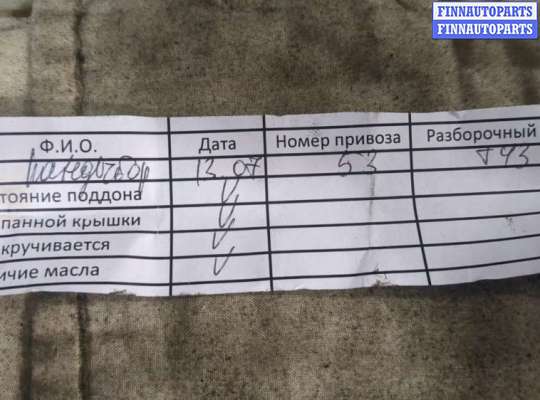 FINNAUTOPARTS
FINNAUTOPARTS
Ф.И.О. Дата Номер привоза Разборочный
13.07 53 Т43
тояние поддона
панной крышки
кручивается
ичие масла